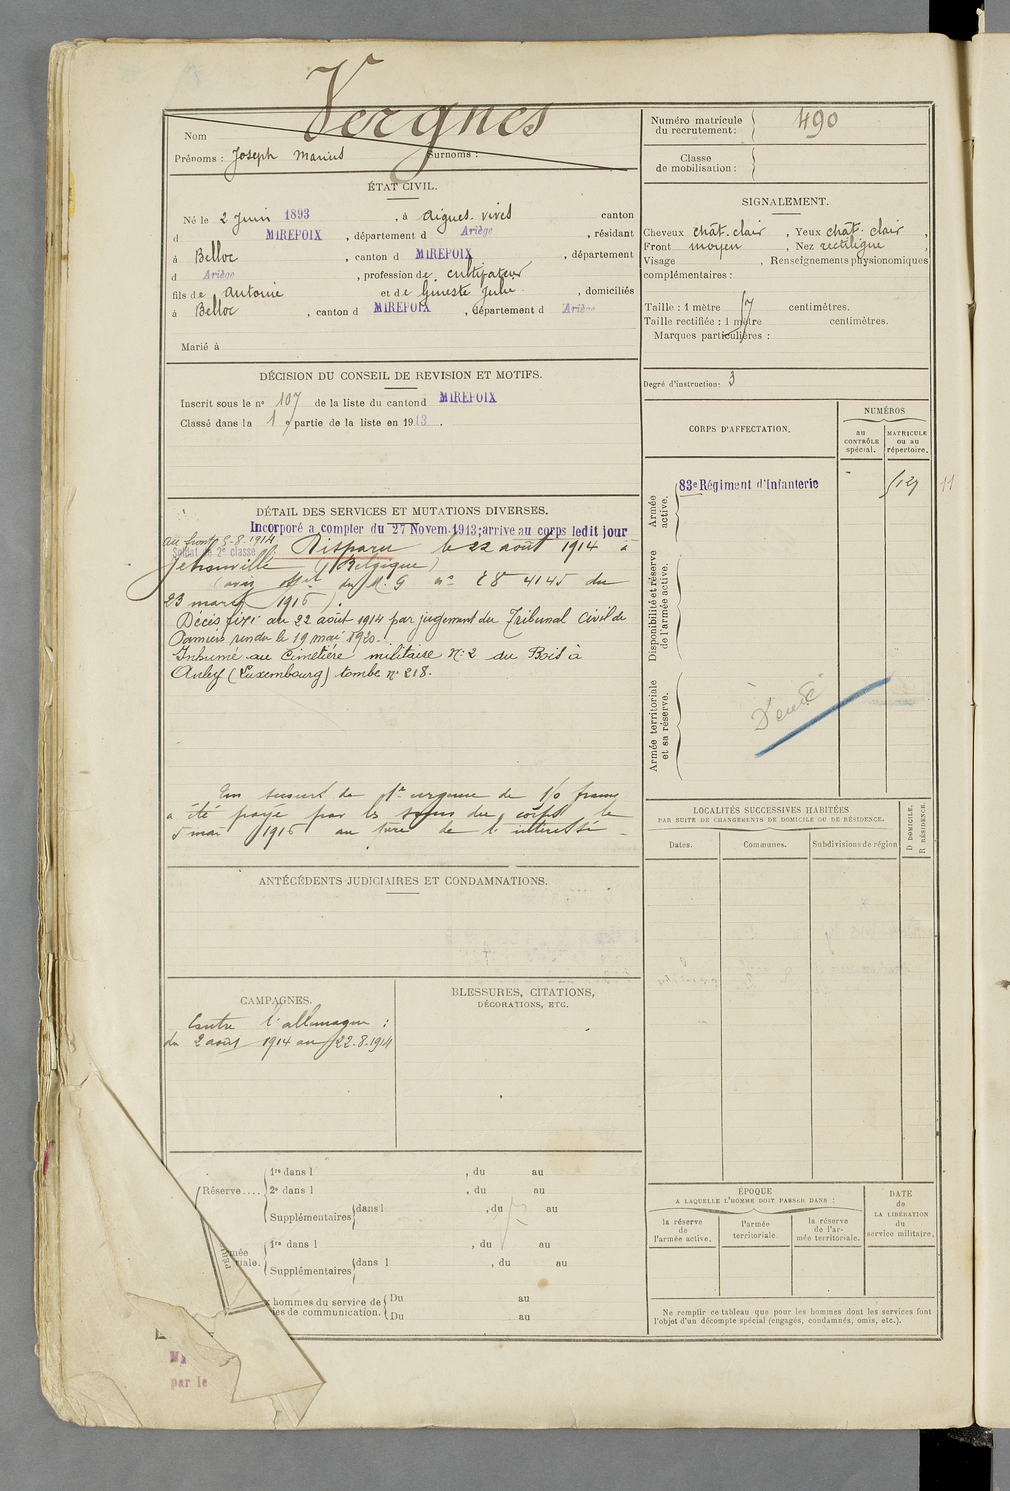 Vergnes
Nom
Prénoms : Joseph Marius Surnoms :
Numéro matricule
du recrutement :
490
Classe
de mobilisation :
ÉTAT CIVIL.
Né le 2 Juin 1893, à Aigues-vives canton
d MIREPOIX, département d Ariège, résidant
à Belloc, canton d MIREPOIX, département
d Ariège, profession de cultivateur
fils de Antoine et de Gineste Julie, domiciliés
à Belloc, canton d MIREPOIX, département d Ariège
Marié à
SIGNALEMENT.
Cheveux chât. clair, Yeux chât. clair,
Front moyen, Nez rectiligne,
Visage , Renseignements physionomiques
complémentaires :
Taille : 1 mètre 57 centimètres.
Taille rectifiée : 1 mètre centimètres.
Marques particulières :
Degré d'instruction : 3
DÉCISION DU CONSEIL DE REVISION ET MOTIFS.
Inscrit sous le n° 107 de la liste du canton d MIREPOIX
Classé dans la 1e partie de la liste en 1913.
CORPS D'AFFECTATION.
NUMÉROS
au
CONTRÔLE
spécial.
MATRICULE
ou au
répertoire.
Armée
active.
83e Régiment d'Infanterie
11
Disponibilité et réserve
de l'armée active.
Armée territoriale
et sa réserve.
DÉTAIL DES SERVICES ET MUTATIONS DIVERSES.
Incorporé a compter du 27 Novem. 1913; arrive au corps ledit jour
au front 5-8-1914
Soldat de 2e classe
Disparu le 22 août 1914 à
Jehonville (Belgique)
(avis offel du M. G n° E8 4145 du
23 mars 1916).
Décès fixé au 22 août 1914 par jugement du Tribunal Civil de
Pamiers rendu le 19 mai 1920.
Inhumé au Cimetière militaire N° 2 du Bois à
Anley (Luxembourg) tombe n° 218.
Un secours de 1re urgence de 150 francs
a été payé par les soins du corps le
5 mai 1916 au père de l'intéressé.
LOCALITÉS SUCCESSIVES HABITÉES
PAR SUITE DE CHANGEMENTS DE DOMICILE OU DE RÉSIDENCE.
D DOMICILE.
R RÉSIDENCE.
Dates.
Communes.
Subdivisions de région
ANTÉCÉDENTS JUDICIAIRES ET CONDAMNATIONS.
CAMPAGNES.
Contre l'allemagne :
du 2 août 1914 au 22-8-1914
BLESSURES, CITATIONS,
DÉCORATIONS, ETC.
Réserve ....
1re dans l , du au
2e dans l , du au
Supplémentaires dans l , du au
1re dans l , du au
Supplémentaires dans l , du au
hommes du service de
es de communication.
Du au
Du au
ÉPOQUE
A LAQUELLE L'HOMME DOIT PASSER DANS :
la réserve
de
l'armée active.
l'armée
territoriale
la réserve
de l'ar-
mée territoriale.
DATE
de
LA LIBÉRATION
du
service militaire.
Ne remplir ce tableau que pour les hommes dont les services font
l'objet d'un décompte spécial (engagés, condamnés, omis, etc.).
par le